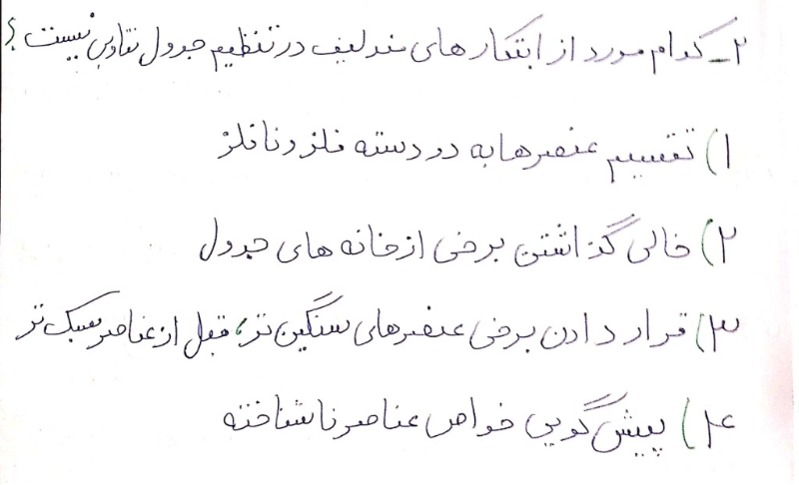 ۲_ کدام مورد از ابتکارهای مندلیف در تنظیم جدول تناوبی نیست؟
۱) تقسیم عنصرها به دو دسته فلز و نافلز
۲) خالی گذاشتن برخی از خانه های جدول
۳) قرار دادن برخی عنصرهای سنگین تر، قبل از عناصر سبک تر
۴) پیش گویی خواص عناصر ناشناخته